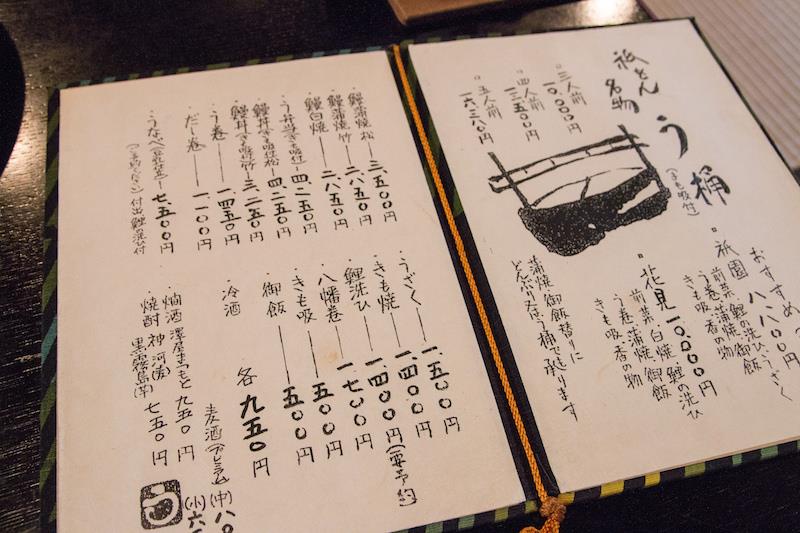 祇をん名物
う桶
(きも吸付)
三人前
一〇、〇〇〇円
四人前
一三、五〇〇円
五人前
一六、三八〇円
蒲焼御飯替りに
どんぶり又は桶で承ります
おすすめ
祇園 八八〇〇円
前菜、鯉の洗ひ、うざく
う巻、蒲焼、御飯
きも吸、香の物
花見 一〇、〇〇〇円
前菜、白焼、鯉の洗ひ
う巻、蒲焼、御飯
きも吸、香の物
鰻蒲焼 松 三、五〇〇円
鰻蒲焼 竹 二、八五〇円
鰻白焼 二、八五〇円
う弁当(きも吸付) 四、二五〇円
鰻丼(きも吸付)松 四、二五〇円
鰻丼(きも吸付)竹 三、二五〇円
う巻 一、四五〇円
だし巻 一、一〇〇円
うなべ 七、五〇〇円
付出 鯉の洗ひ付
うざく 一、五〇〇円
きも焼 一、四〇〇円
鯉洗ひ 一、四〇〇円(要予約)
八幡巻 一、七〇〇円
きも吸 五〇〇円
御飯 五〇〇円
冷酒 各 九五〇円
麦酒(プレミアム)(中)八〇
(小)六
燗酒 澤屋まつもと 九五〇円
焼酎 神河内
黒霧島(芋) 七五〇円